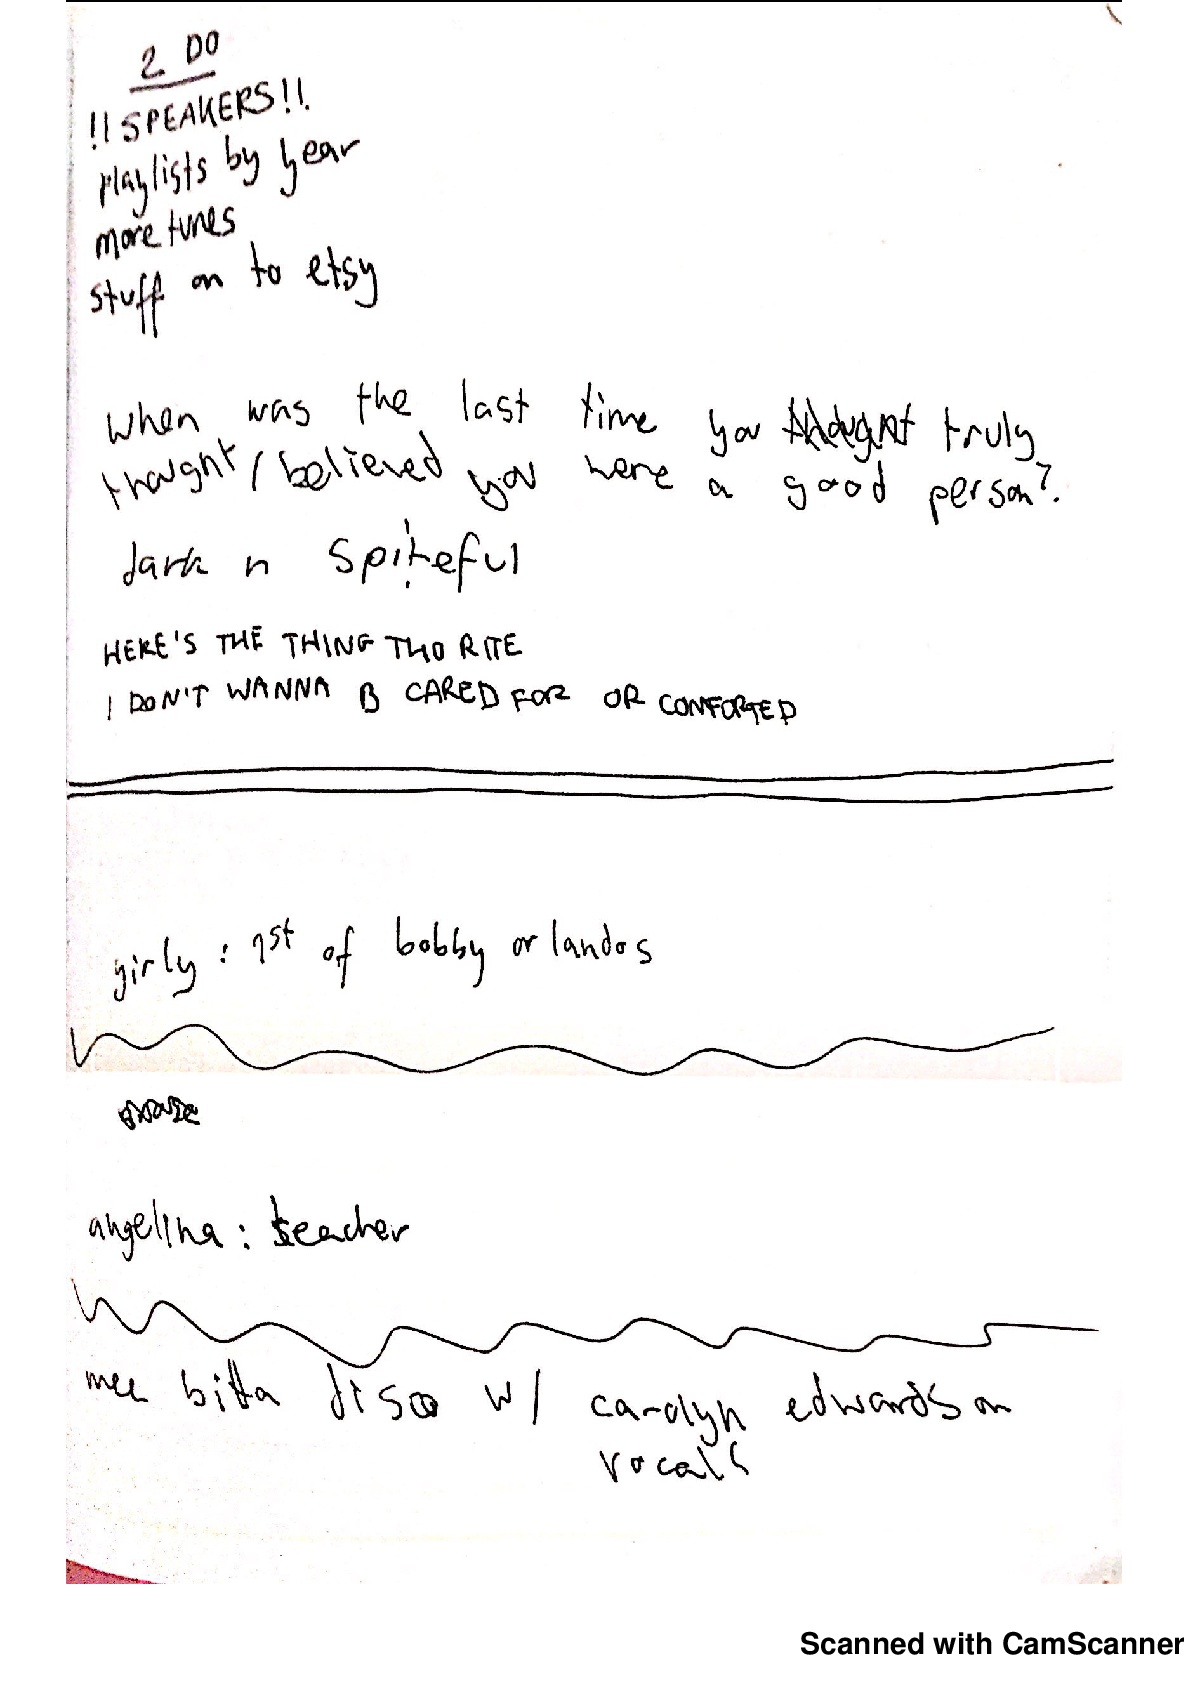 2 DO
!!SPEAKERS!!
playlists by year
more tunes
stuff on to etsy
when was the last time you thought truly
thought/believed you were a good person?
dark n spiteful
HERE'S THE THING THO RITE
I DON'T WANNA B CARED FOR OR COMFORTED
girly : 1st of bobby orlandos
angelina : teacher
bitta disco w/ carolyn edwards on
vocals
Scanned with CamScanner